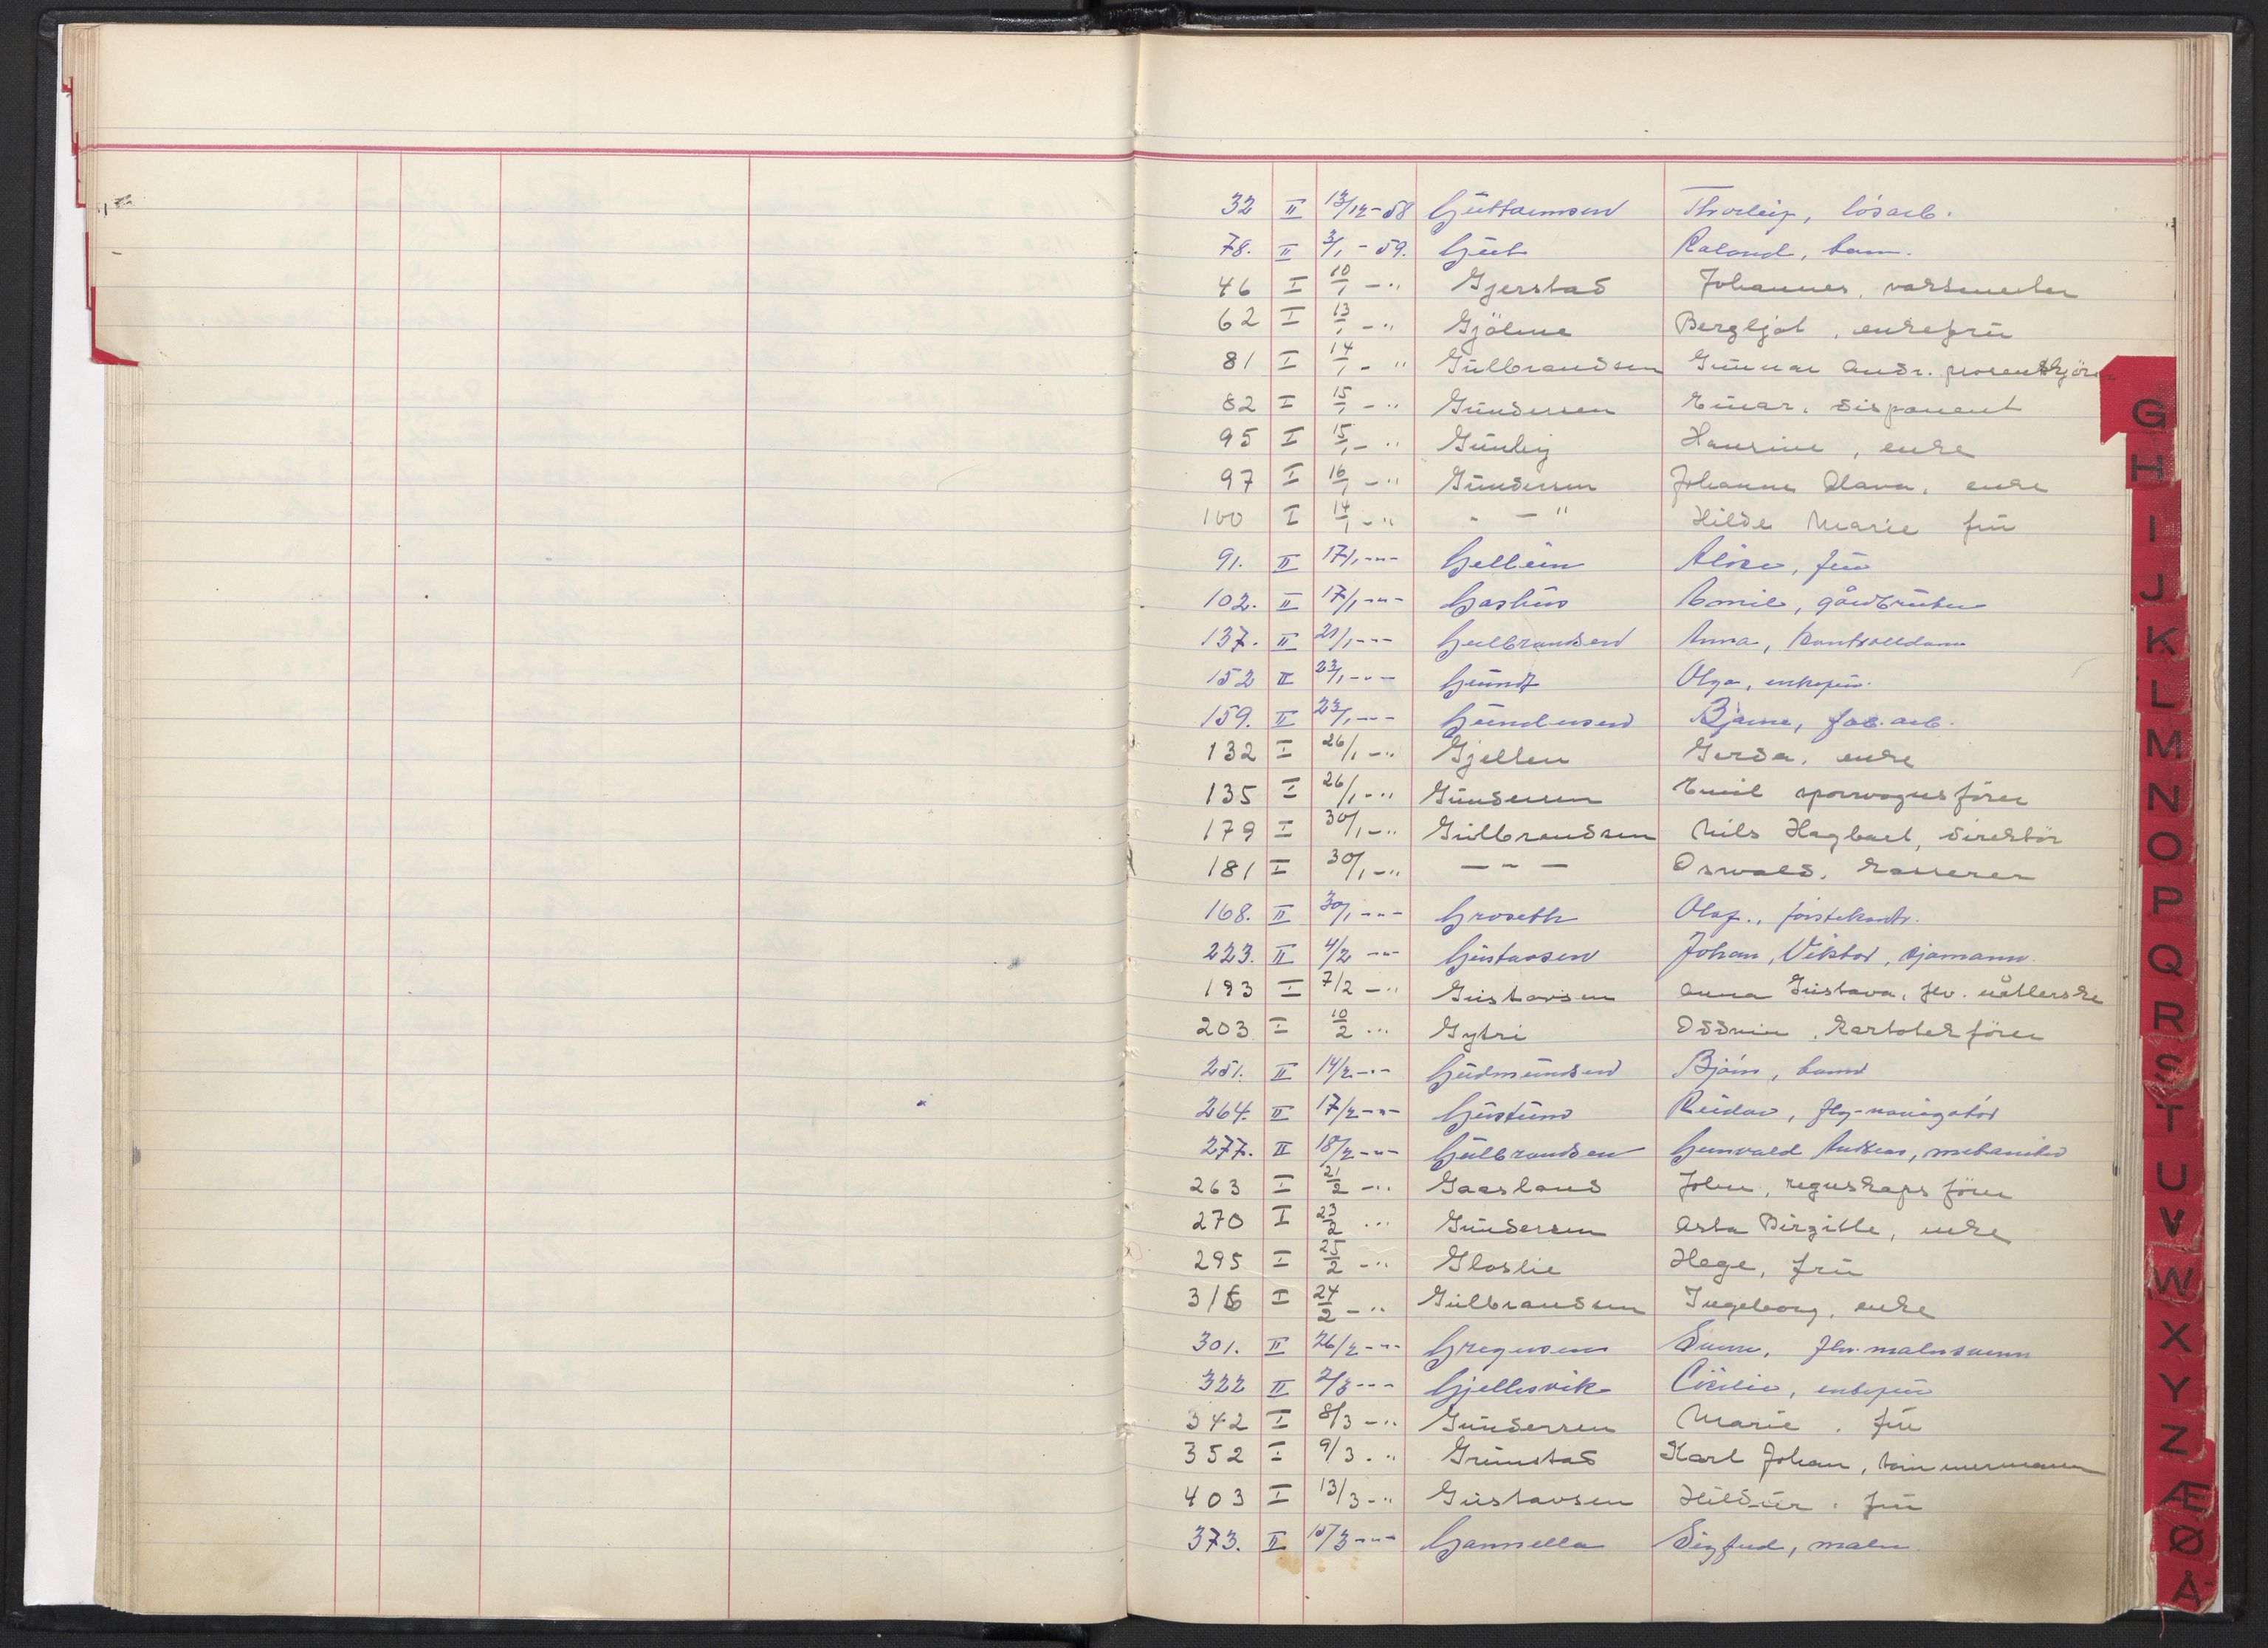 32 II 13/12-58 Guttormsen Thorleif, løsarb.
78. II 3/1-59. Gut Roland, barn.
46 I 10/1 - " Gjerstad Johannes, vaktmester
62 I 13/1 - " Gjölme Bergljot, enkefru
81 I 14/1 - " Gulbrandsen Gunnar Andr.
82 I 15/1 - " Gundersen Einar, disponent
95 I 15/1 - " Gunby Hansine, enke
97 I 16/1 - " Gundersen Johanne Olava, enke
100 I 14/1 - " - - " Hilde Marie fru
91. II 17/1 - " - Gellein fru
102. II 17/1 - " - Gashus Emil, gårdbruker
137. II 21/1 - " - Gulbrandsen Anna, kontrolldame
152 II 23/1 - " - Grundt Olga, enkefru.
159. II 23/1 - " - Gundersen Bjarne, fab. arb.
132 I 26/1 - " Gjellen Gerda, enke
135 I 26/1 - " Gundersen Emil sporvognsfører
179 I 30/1 - " Gulbrandsen Nils Hagbart, direktör
181 I 30/1 - " - " - Oswald, kasserer
168. II 30/1 - " - Groseth Olaf, førstekontr.
223. II 4/2 - " - Gustavsen Johan, Viktor, sjømann
193 I 7/2 - " Gustavsen Anna Gustava, fhv.
203 I 10/2 - " Gytri Oddwin, kartotekförer
251. II 14/2 - " - Gudmundsen Bjørn, barn
264. II 17/2 - " - Reidar, fly-navigatør
277. II 18/2 - " - Gulbrandsen Gunvald Andreas, mekaniker
263 I 21/2 - " Gaasland John, regnskapsförer
270 I 23/2 - " Gundersen Asta Birgitte, enke
295 I 25/2 - " Gloslie Hege, fru
316 I 24/2 - " Gulbrandsen Ingeborg, enke
301. II 26/2 - " - Gregersen fhv. malersvenn
322 II 2/3 - " - Gjellesvik Cicilie, enkefru
342 I 8/3 - " Gundersen Marie, fru
352 I 9/3 - " Grimstad Karl Johan, tømmermann
403 I 13/3 - " Gustavsen Hildur, fru
373. II 15/3 - " - Gamsella Sigfred, maler
G
H
I
J
K
L
M
N
O
P
Q
R
S
T
U
V
W
X
Y
Z
Æ
Ø
Å